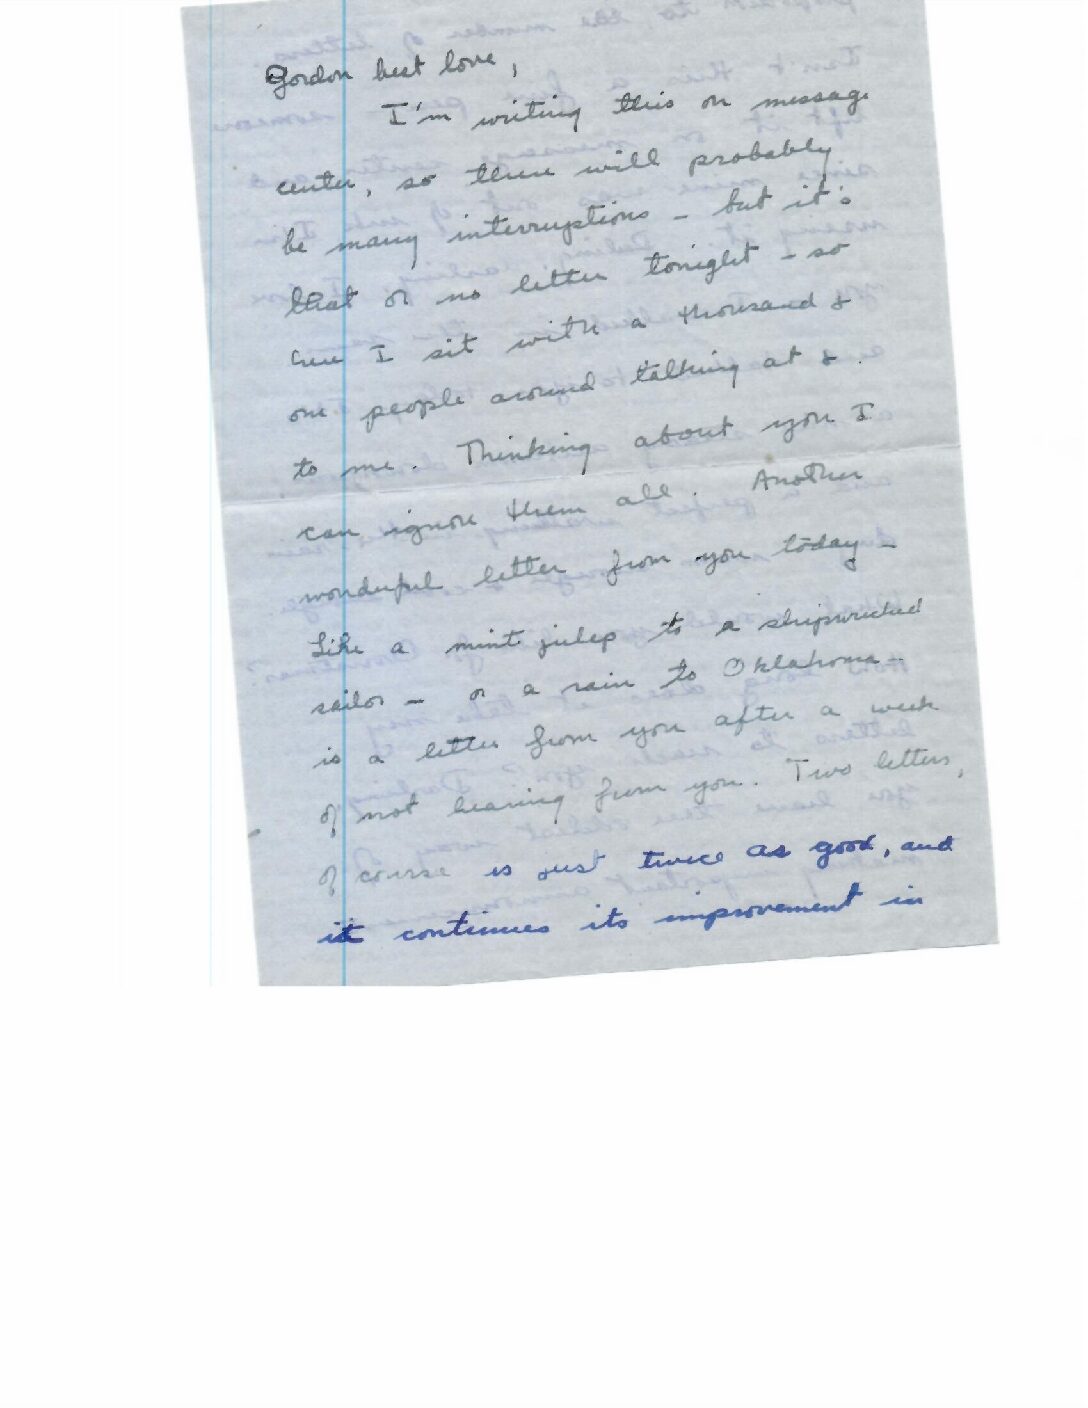 Gordon best love,
I'm writing this on message
center, so there will probably
be many interruptions - but it's
that or no letter tonight - so
here I sit with a thousand &
one people around talking at &
to me. Thinking about you I
can ignore them all. Another
wonderful letter from you today -
Like a mint julep to a shipwrecked
sailor - or a rain to Oklahoma -
is a letter from you after a week
of not hearing from you. Two letters,
of course is just twice as good, and
it continues its improvement in